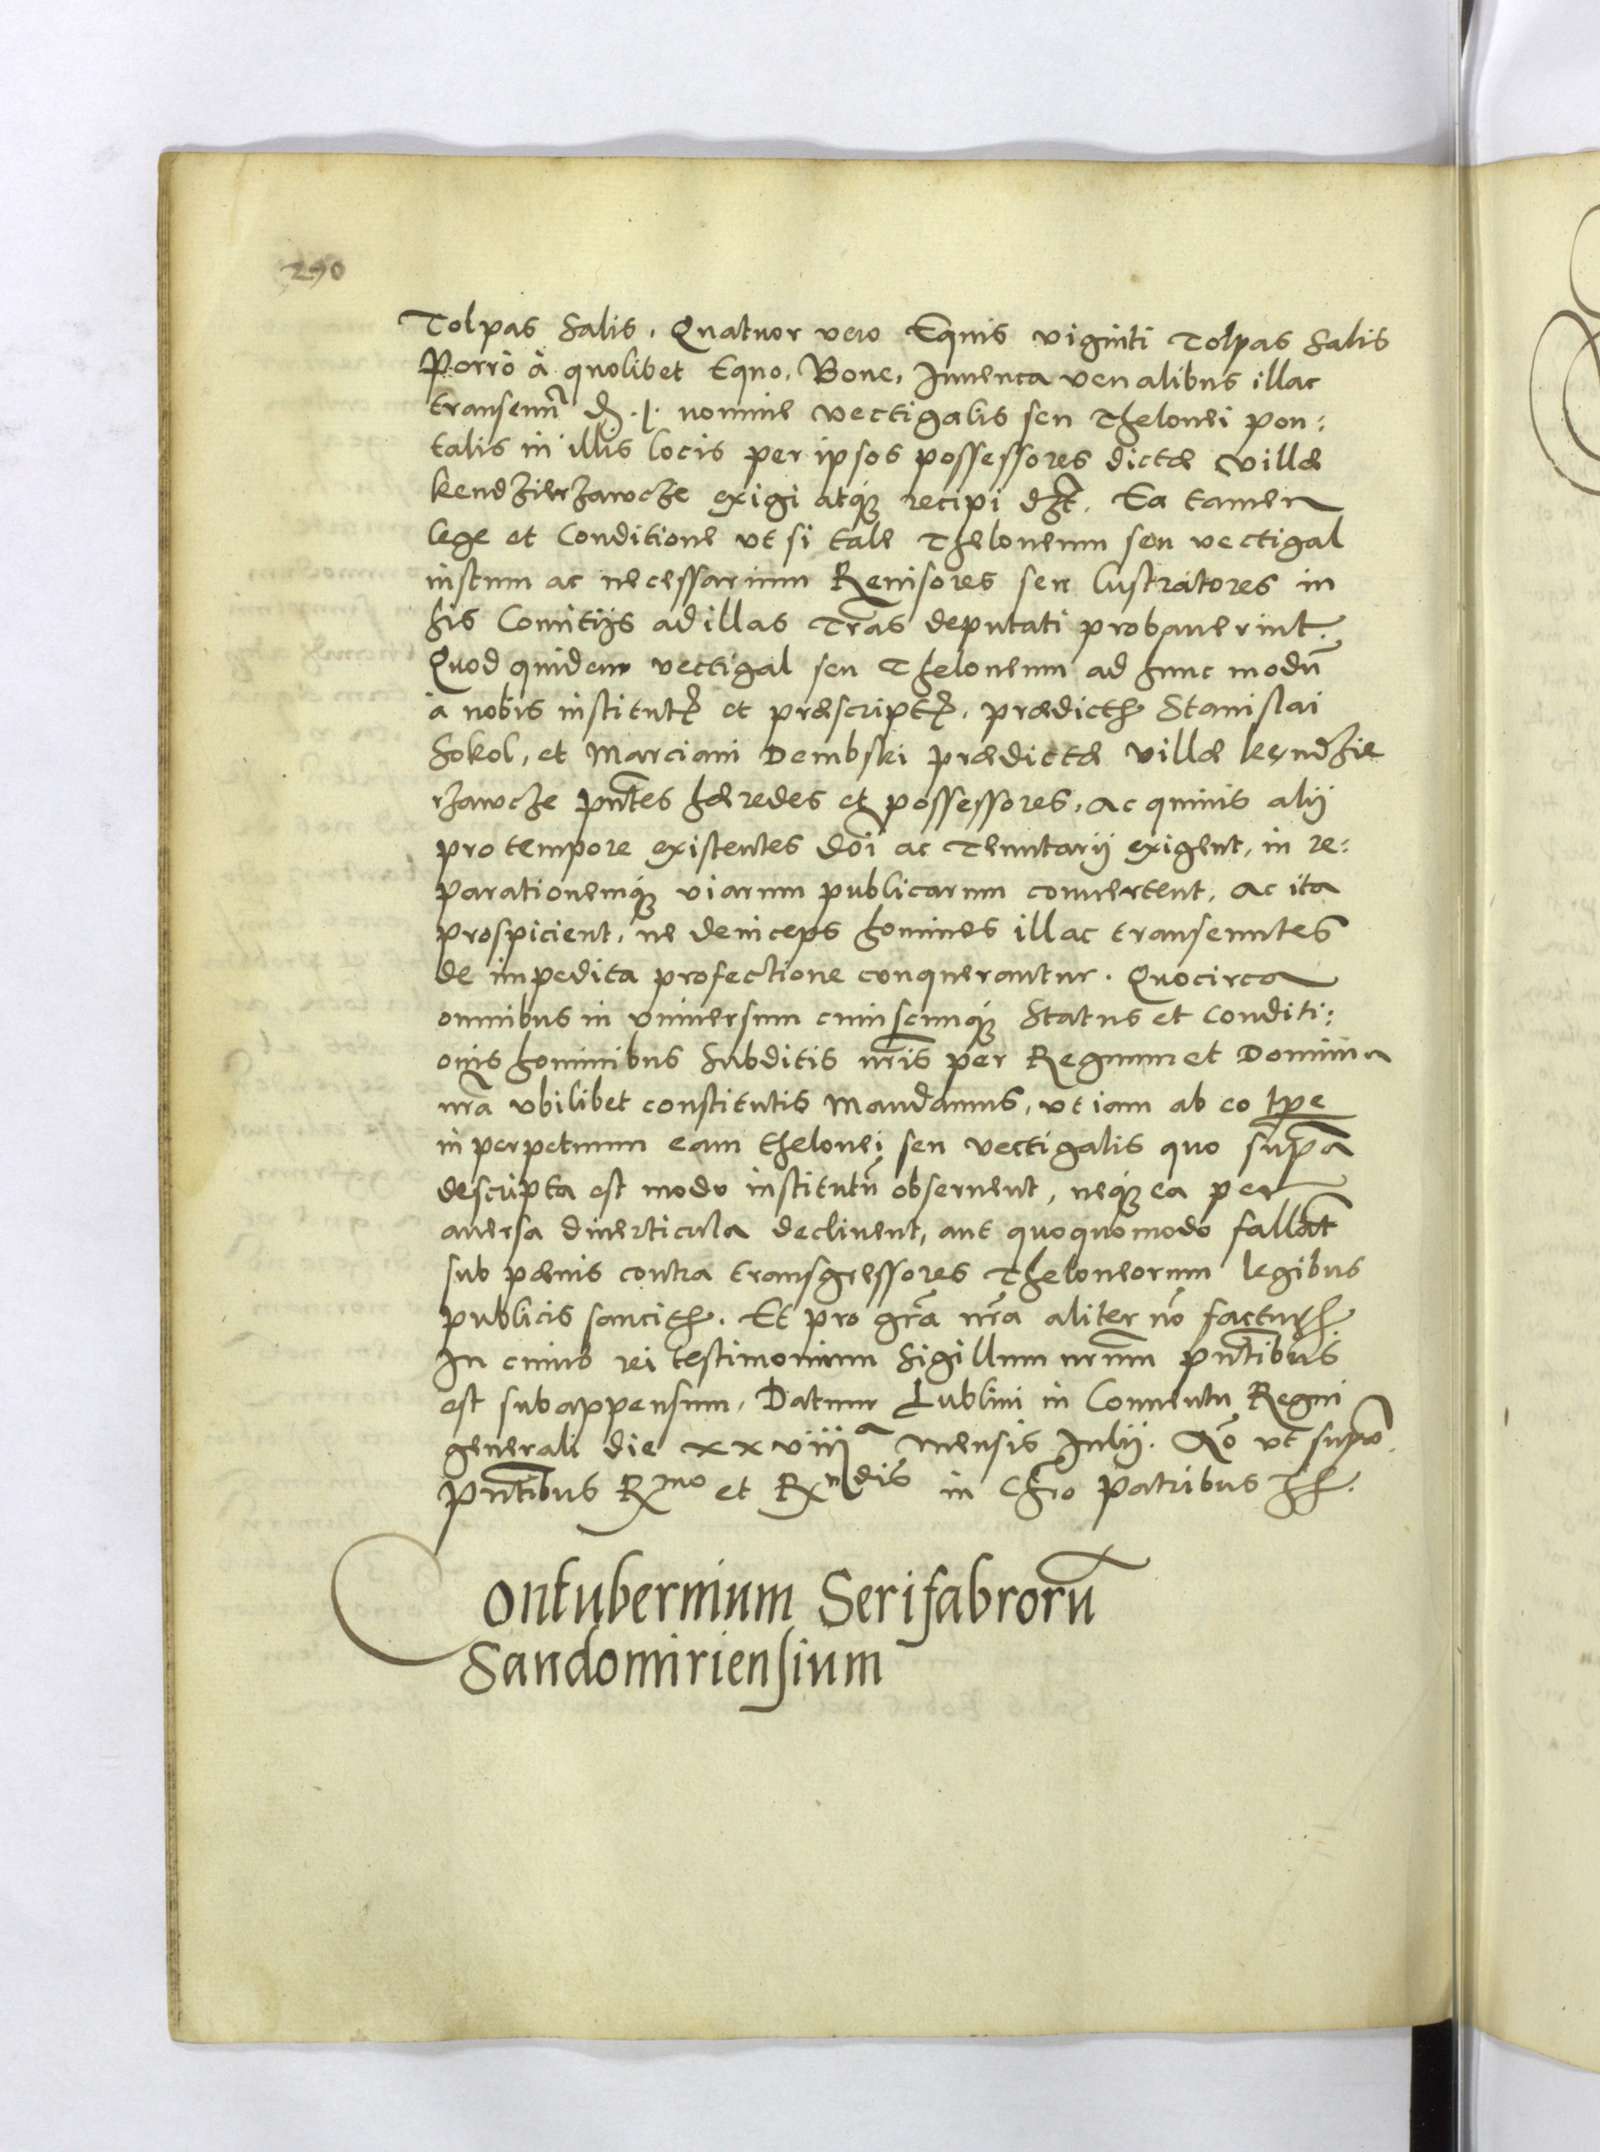 290
Tolpas Salis. Quatuor vero Equis viginti Tolpas Salis
Porrò à quolibet Equo, Boue, Iuuenca venalibus illac
transeuñ d. j. nomine vectigalis seu Thelonei pon:
talis in illis locis per ipsos possessores dictæ villæ
kendzierzawcze exigi atq́ recipi Ea tamen
lege et Conditione vt si tale Theloneum seu vectigal
iustum ac necessarium Reuisores seu lustratores in
his Comitijs ad illas Tras deputati probauerint.
Quod quidem vectigal seu Theloneum ad hunc modũ
à nobis institut et præscript, prædict Stanislai
Sokol, et Marciani Dembski prædictæ villæ kendzie
rzawcze pñtes hæredes et possessores, ac quiuis alij
pro tempore existentes dñi ac Tenutarij exigent, in re:
parationemq́ viarum publicarum conuertent, ac ita
prospicient, ne deinceps homines illac transeuntes
de impedita profectione conquerantur. Quocirca
omnibus in vniuersum cuiuscunq́ Status et Conditi:
onis hominibus Subditis nr̃is per Regnum et Dominia
nr̃a vbilibet constitutis Mandamus, vt iam ab eo tpe
in perpetuum eam thelonei seu vectigalis quo supra
descripta est modo institutũ obseruent, neq́ ea per
auersa diuerticula declinent, aut quoquomodo fallāt
sub pænis contra transgressores Theloneorum legibus
publicis sancit. Et pro grã nr̃a aliter nõ factur.
In cuius rei testimonium Sigillum nrum pñtibus
est subappensum. Datum Lublini in Conuentu Regni
generali die xxviiiᵃ Mensis Iulij. Aõ vt supra.
Pñtibus Rᵐᵒ et Rⁿᵈⁱˢ in Chro Patribus
Contubernium Serifabrorũ
Sandomiriensium